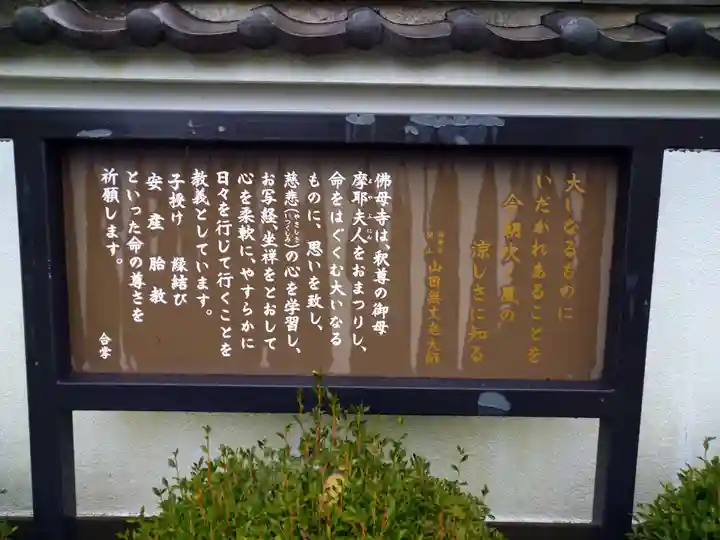 大いなるものに
いだかれあることを
今朝吹く風の
涼しさに知る
山田無文老大師
佛母寺は、釈尊の御母
摩耶夫人をおまつりし、
命をはぐくむ大いなる
ものに、思いを致し、
慈悲(やさしさ いつくしみ)の心を学習し、
お写経、坐禅をとおして
心を柔軟に、やすらかに
日々を行じて行くことを
教義としています。
子授け 縁結び
安産胎教
といった命の尊さを
祈願します。
合掌